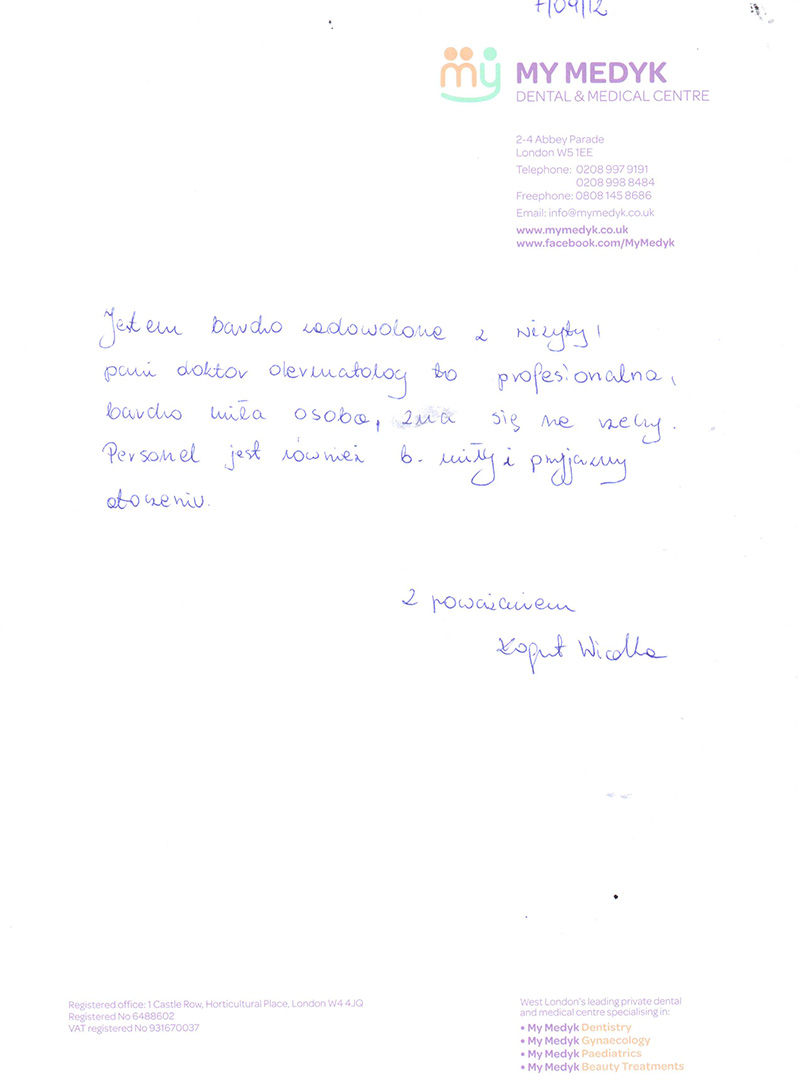 7/09/12
my MY MEDYK
DENTAL & MEDICAL CENTRE
2-4 Abbey Parade
London W5 1EE
Telephone: 0208 997 9191
0208 998 8484
Freephone: 0808 145 8686
Email: info@mymedyk.co.uk
www.mymedyk.co.uk
www.facebook.com/MyMedyk
Jestem bardzo zadowolona z wizyty,
pani doktor dermatolog to profesjonalna,
bardzo miła osoba, zna się na rzeczy.
Personel jest również b. miły i przyjazny
otoczeniu.
Z poważaniem
Registered office: 1 Castle Row, Horticultural Place, London W4 4JQ
Registered No 6488602
VAT registered No 931670037
West London's leading private dental
and medical centre specialising in:
• My Medyk Dentistry
• My Medyk Gynaecology
• My Medyk Paediatrics
• My Medyk Beauty Treatments